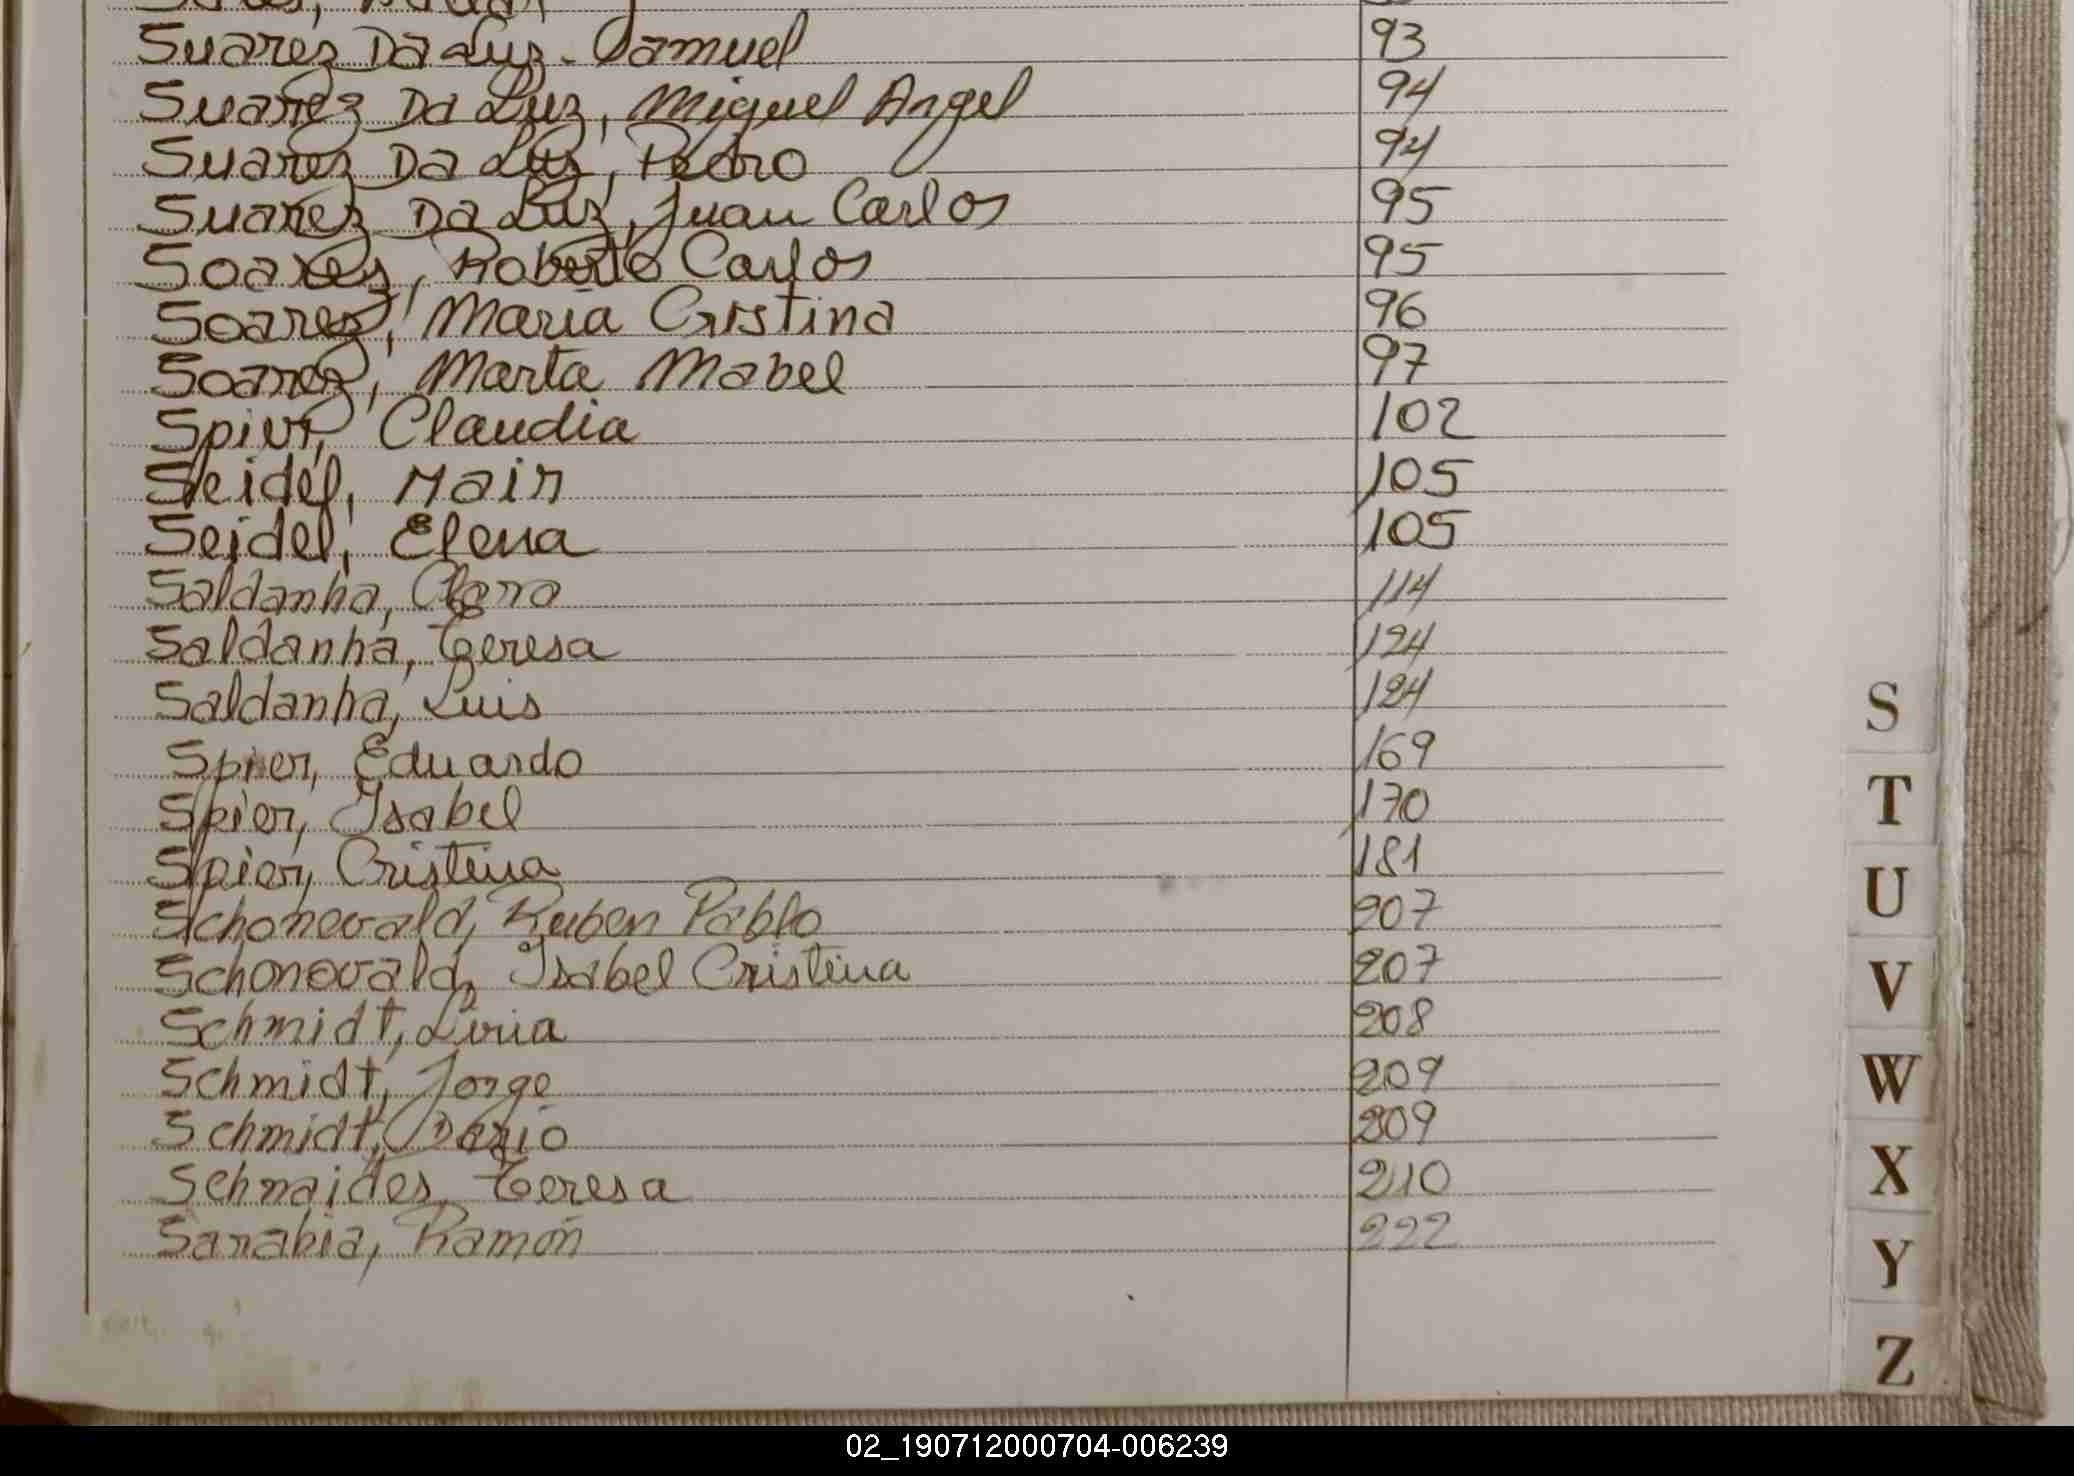 Suarez Da Luz. Samuel 93
Suarez Da Luz, Miguel Angel 94
Suarez Da Luz, Pedro 94
Suarez Da Luz, Juan Carlos 95
Soares, Roberto Carlos 95
Soarez, Maria Cristina 96
Soarez, Marta Mabel 97
Spier, Claudia 102
Seidel, Mair 105
Seidel, Elena 105
Saldanha, Clara 114
Saldanha, Teresa 124
Saldanha, Luis 124
Spier, Eduardo 169
Spier, Isabel 170
Spier, Cristina 181
Schonovald, Ruben Pablo 207
Schonovald, Isabel Cristina 207
Schmidt, Livia 208
Schmidt, Jorge 209
Schmidt, Dario 209
Schnaides, Teresa 210
Sarabia, Ramón 222
S
T
U
V
W
X
Y
Z
02_190712000704-006239